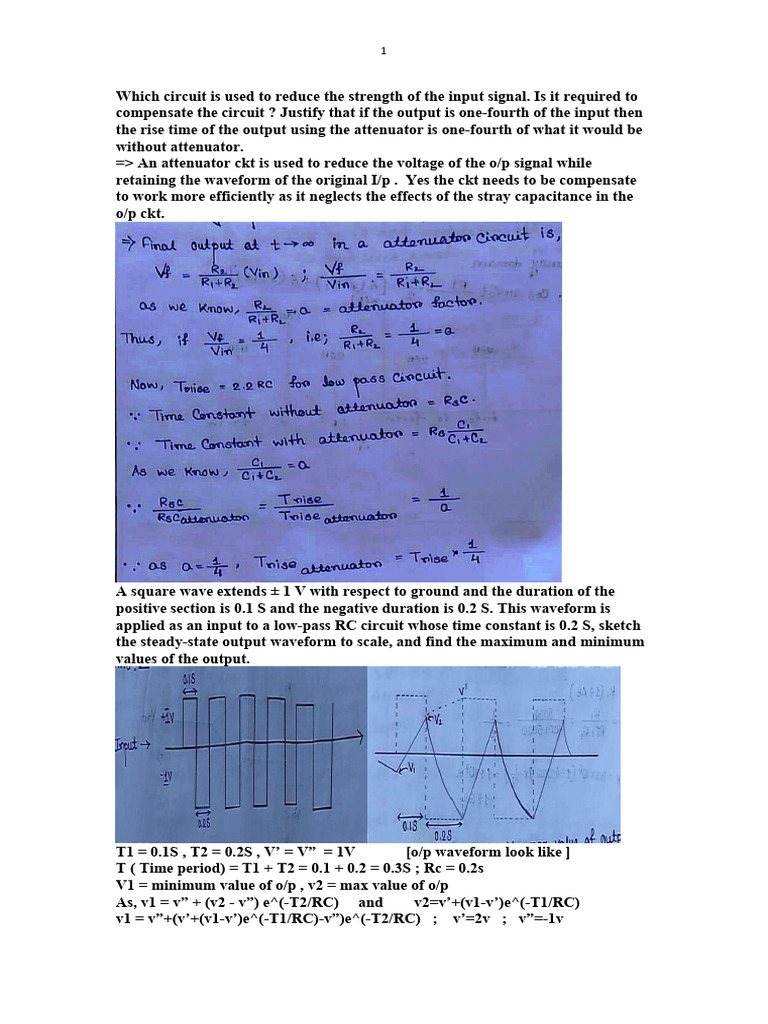 1
Which circuit is used to reduce the strength of the input signal. Is it required to
compensate the circuit ? Justify that if the output is one-fourth of the input then
the rise time of the output using the attenuator is one-fourth of what it would be
without attenuator.
=> An attenuator ckt is used to reduce the voltage of the o/p signal while
retaining the waveform of the original I/p . Yes the ckt needs to be compensate
to work more efficiently as it neglects the effects of the stray capacitance in the
o/p ckt.
⇒ Final output at t→∞ in a attenuator circuit is,
Vf = R2/(R1+R2) (Vin) ; Vf/Vin = R2/(R1+R2)
as we know, R2/(R1+R2) = a = attenuator factor.
Thus, if Vf/Vin = 1/4 , i.e; R2/(R1+R2) = 1/4 = a
Now, Trise = 2.2 RC for low pass circuit.
∵ Time Constant without attenuator = RsC.
∴ Time Constant with attenuator = Rs C1/(C1+C2)
As we know, C1/(C1+C2) = a
∵ RsC/RsCattenuator = Trise/Trise attenuator = 1/a
∵ as a = 1/4 , Trise attenuator = Trise * 1/4
A square wave extends ± 1 V with respect to ground and the duration of the
positive section is 0.1 S and the negative duration is 0.2 S. This waveform is
applied as an input to a low-pass RC circuit whose time constant is 0.2 S, sketch
the steady-state output waveform to scale, and find the maximum and minimum
values of the output.
0.1S
+1V
Input →
-1V
0.2S
V'
V2
V1
0.1S
0.2S
T1 = 0.1S , T2 = 0.2S , V’ = V” = 1V [o/p waveform look like ]
T ( Time period) = T1 + T2 = 0.1 + 0.2 = 0.3S ; Rc = 0.2s
V1 = minimum value of o/p , v2 = max value of o/p
As, v1 = v” + (v2 - v”) e^(-T2/RC) and v2=v’+(v1-v’)e^(-T1/RC)
v1 = v”+(v’+(v1-v’)e^(-T1/RC)-v”)e^(-T2/RC) ; v’=2v ; v”=-1v